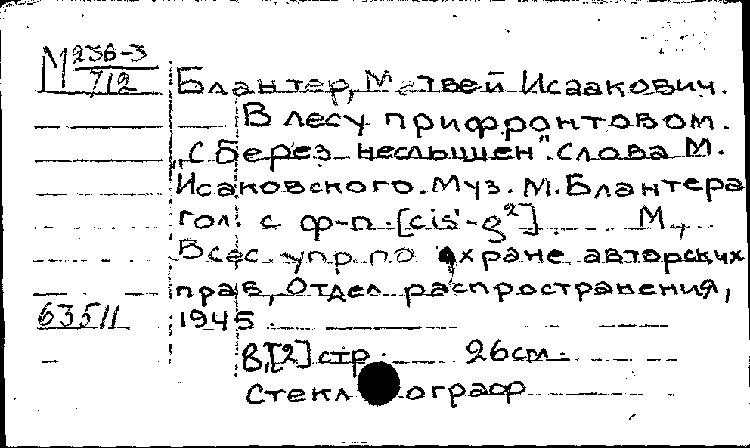 М 236-3
712
Блантер, Матвей Исаакович.
В лесу прифронтовом.
„С берез неслышен". Слова М.
Исаковского. Муз. М. Блантера
гол. с ф-п. [cis'-g²] М.,
Всес. упр. по охране авторских
прав, Отдел распространения,
63511 1945
8, [2] стр. 26см.
Стеклограф